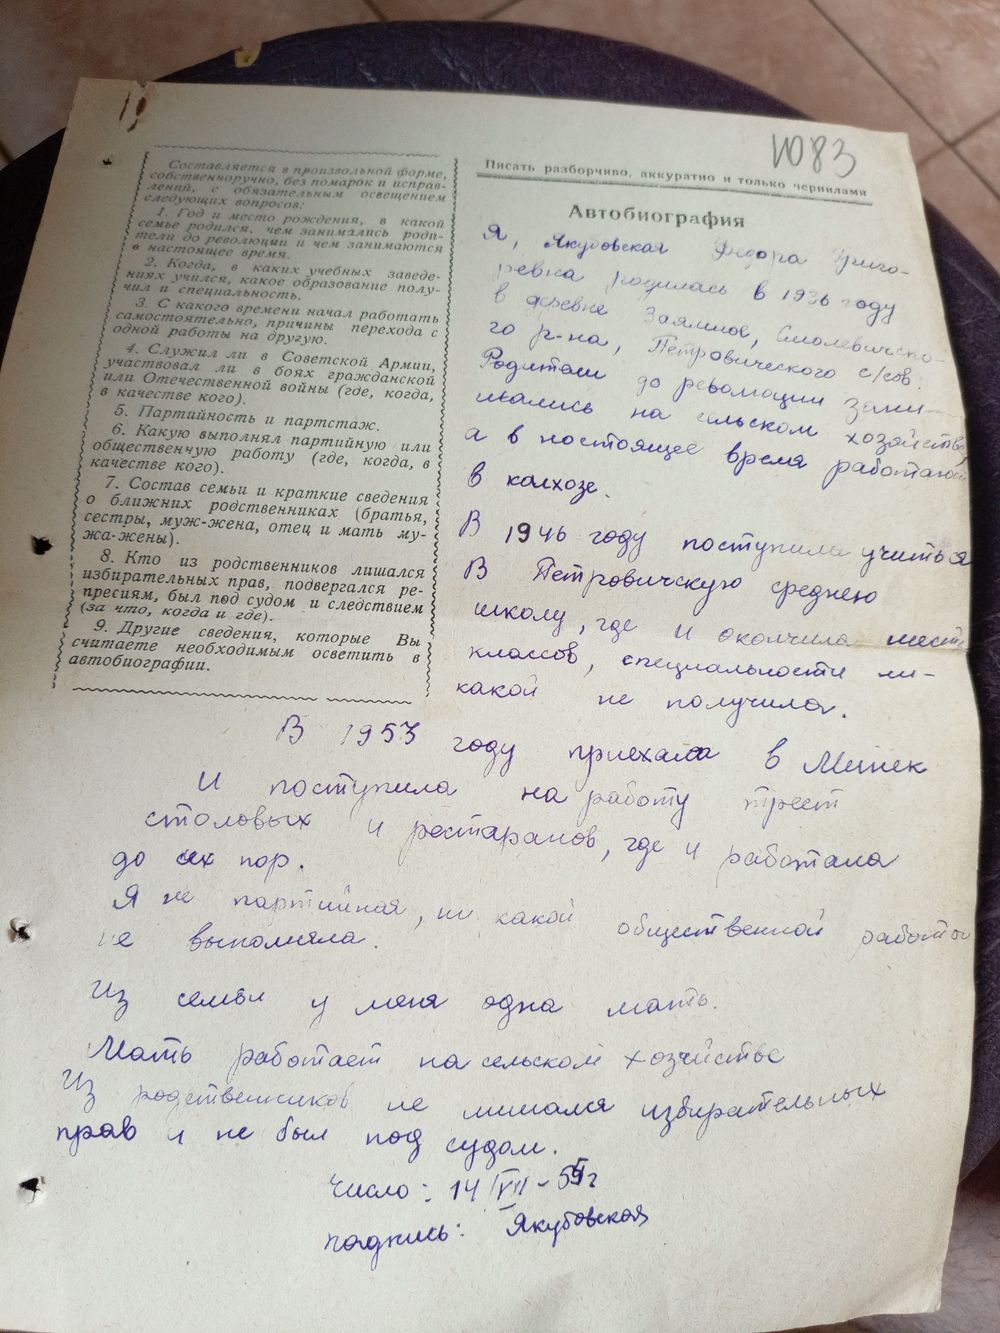 1083
Составляется в произвольной форме,
собственноручно, без помарок и исправ-
лений, с обязательным освещением
следующих вопросов:
1. Год и место рождения, в какой
семье родился, чем занимались роди-
тели до революции и чем занимаются
в настоящее время.
2. Когда, в каких учебных заведе-
ниях учился, какое образование полу-
чил и специальность.
3. С какого времени начал работать
самостоятельно, причины перехода с
одной работы на другую.
4. Служил ли в Советской Армии,
участвовал ли в боях гражданской
или Отечественной войны (где, когда,
в качестве кого).
5. Партийность и партстаж.
6. Какую выполнял партийную или
общественную работу (где, когда, в
качестве кого).
7. Состав семьи и краткие сведения
о ближних родственниках (братья,
сестры, муж-жена, отец и мать му-
жа-жены).
8. Кто из родственников лишался
избирательных прав, подвергался ре-
пресиям, был под судом и следствием
(за что, когда и где).
9. Другие сведения, которые Вы
считаете необходимым осветить в
автобиографии.
Писать разборчиво, аккуратно и только чернилами
Автобиография
Я, Якубовская Федора Григо-
ревна родилась в 1936 году
в деревне Заямное, Смолевичско-
го р-на, Петровического с/сов.
Родители до революции зани-
мались на сельском хозяйстве,
а в настоящее время работают
в колхозе.
В 1946 году поступила учиться
в Петровичскую среднею
школу, где и окончила шесть
классов, специальности ни-
какой не получила.
В 1953 году приехала в Минск
и поступила на работу трест
столовых и рестаранов, где и работала
до сих пор.
Я не партийная, ни какой общественной работы
не выполняла.
Из семьи у меня одна мать.
Мать работает на сельском хозяйстве
Из родственников не лишался избирательных
прав и не был под судом.
число: 14/VII-55г
падпись: Якубовская